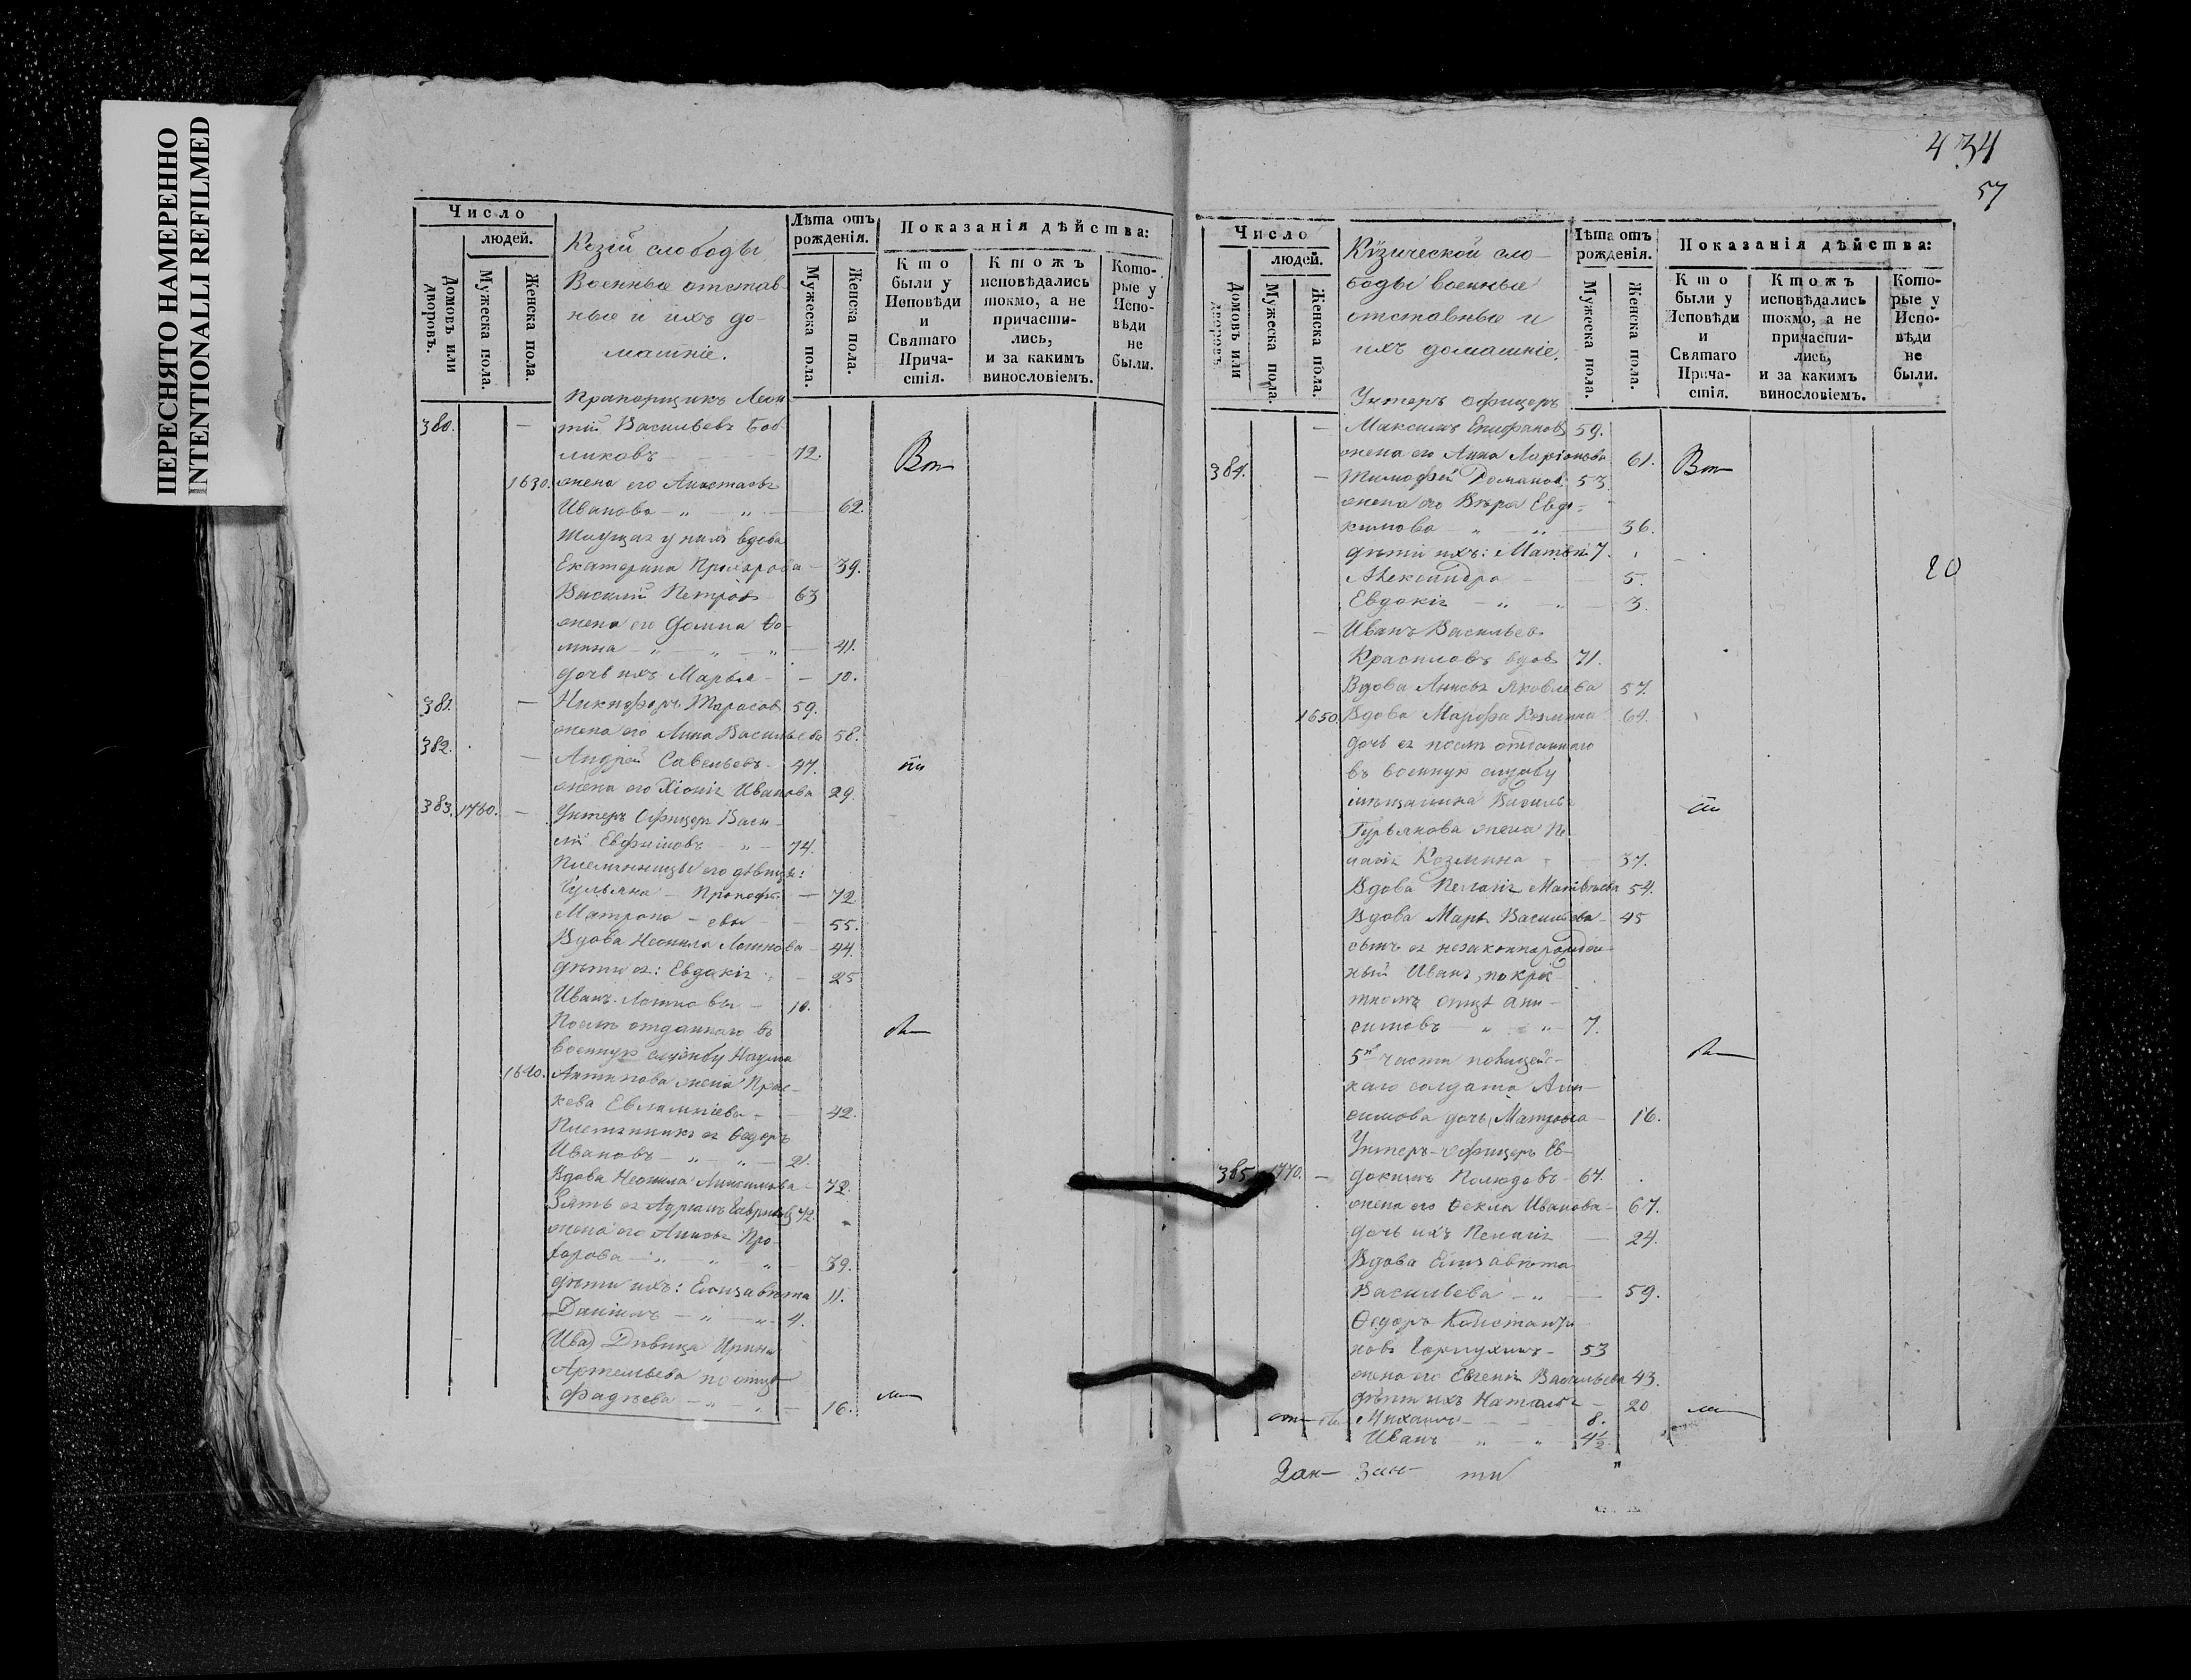 ПЕРЕСНЯТО НАМЕРЕННО
INTENTIONALLI REFILMED
Число
людей.
Домовъ или дворовъ.
Мужеска пола.
Женска пола.
Козьей слободы
Военные отстав-
ные и ихъ до-
машніе.
Лѣта отъ рожденія.
Мужеска пола.
Женска пола.
Показанія дѣйства:
Кто были у Исповѣди и Святаго Прича-стія.
Ктожъ исповѣдались токмо, а не причасти-лись, и за какимъ винословіемъ.
Кото-рые у Испо-вѣди не были.
Прапорщикъ Леон
380. — тій Васильевъ
ликовъ 72.
1630. жена его Анастасья
Иванова 62.
у нихъ вдова
Екатерина 39.
Василій Петровъ 63
жена его Домна Ѳо-
мина 41.
дочь ихъ Марья 10.
381. — Никифоръ Тарасовъ 59.
жена его Анна Васильева 58.
382. — Андрей Савельевъ 47.
жена его Хіонія Иванова 29.
383. 1760. — Унтеръ Офицеръ Васи-
лій Евфимовъ 74.
Племянницы его дѣвицы:
Ульяна Прокофь- 72
Матрона евы 55.
Вдова Неонила Логинова 44.
дѣти ея: Евдокія 25
Иванъ Логиновы 10.
Послѣ отданнаго въ
военную службу Наума
1640. Антипова жена Прас-
кева Евлампіева 42.
Племянникъ ея Ѳедоръ
Ивановъ 21.
Вдова Неонила 72.
Зять ея Адріанъ Гавриловъ 42.
жена его Анисья Про-
хорова 39.
дѣти ихъ: Елизавѣта 11.
Даніилъ 4.
Дѣвица Ирина
Артемьева по отцѣ
Фадѣева 16.
434
57
Число
людей.
Домовъ или дворовъ.
Мужеска пола.
Женска пола.
Кузической сло-
боды военные
отставные и
ихъ домашніе.
Лѣта отъ рожденія.
Мужеска пола.
Женска пола.
Показанія дѣйства:
Кто были у Исповѣди и Святаго Прича-стія.
Ктожъ исповѣдались токмо, а не причасти-лись, и за какимъ винословіемъ.
Кото-рые у Испо-вѣди не были.
Унтеръ офицеръ
— Максимъ Епифановъ 59.
жена его Анна Ларіонова 61.
384. — Тимофей Романовъ 53
жена его Вѣра Евдо-
кимова 36.
дѣти ихъ: Матвѣй 7.
Александра 5.
20
Евдокія 3.
— Иванъ Васильевъ
Красиловъ вдовъ 71.
Вдова Анисья Яковлева 57.
1650. Вдова Марфа Козмина 64.
дочь ея послѣ отданнаго
въ военную службу
мѣщанина Василья
Гурьянова жена Пе
лагія Козмина 37.
Вдова Пелагія Матвѣева 54.
Вдова Марья Васильева 45
сынъ ея незаконнорожден-
ный Иванъ, по крѣс-
тномъ отцѣ Ани-
симовъ 7.
5й части полицейс-
каго солдата Ани-
симова дочь Матрона 16.
Унтеръ-Офицеръ Ев-
385 1770. — докимъ Полюдовъ 67.
жена его Ѳекла Иванова 67.
дочь ихъ Пелагія 24.
Вдова Елизавѣта
Васильева 59.
Ѳедоръ Константи
новъ 53
жена его Евгенія Васильева 43.
дѣти ихъ Наталья 20
Михаилъ 8.
Иванъ 4½